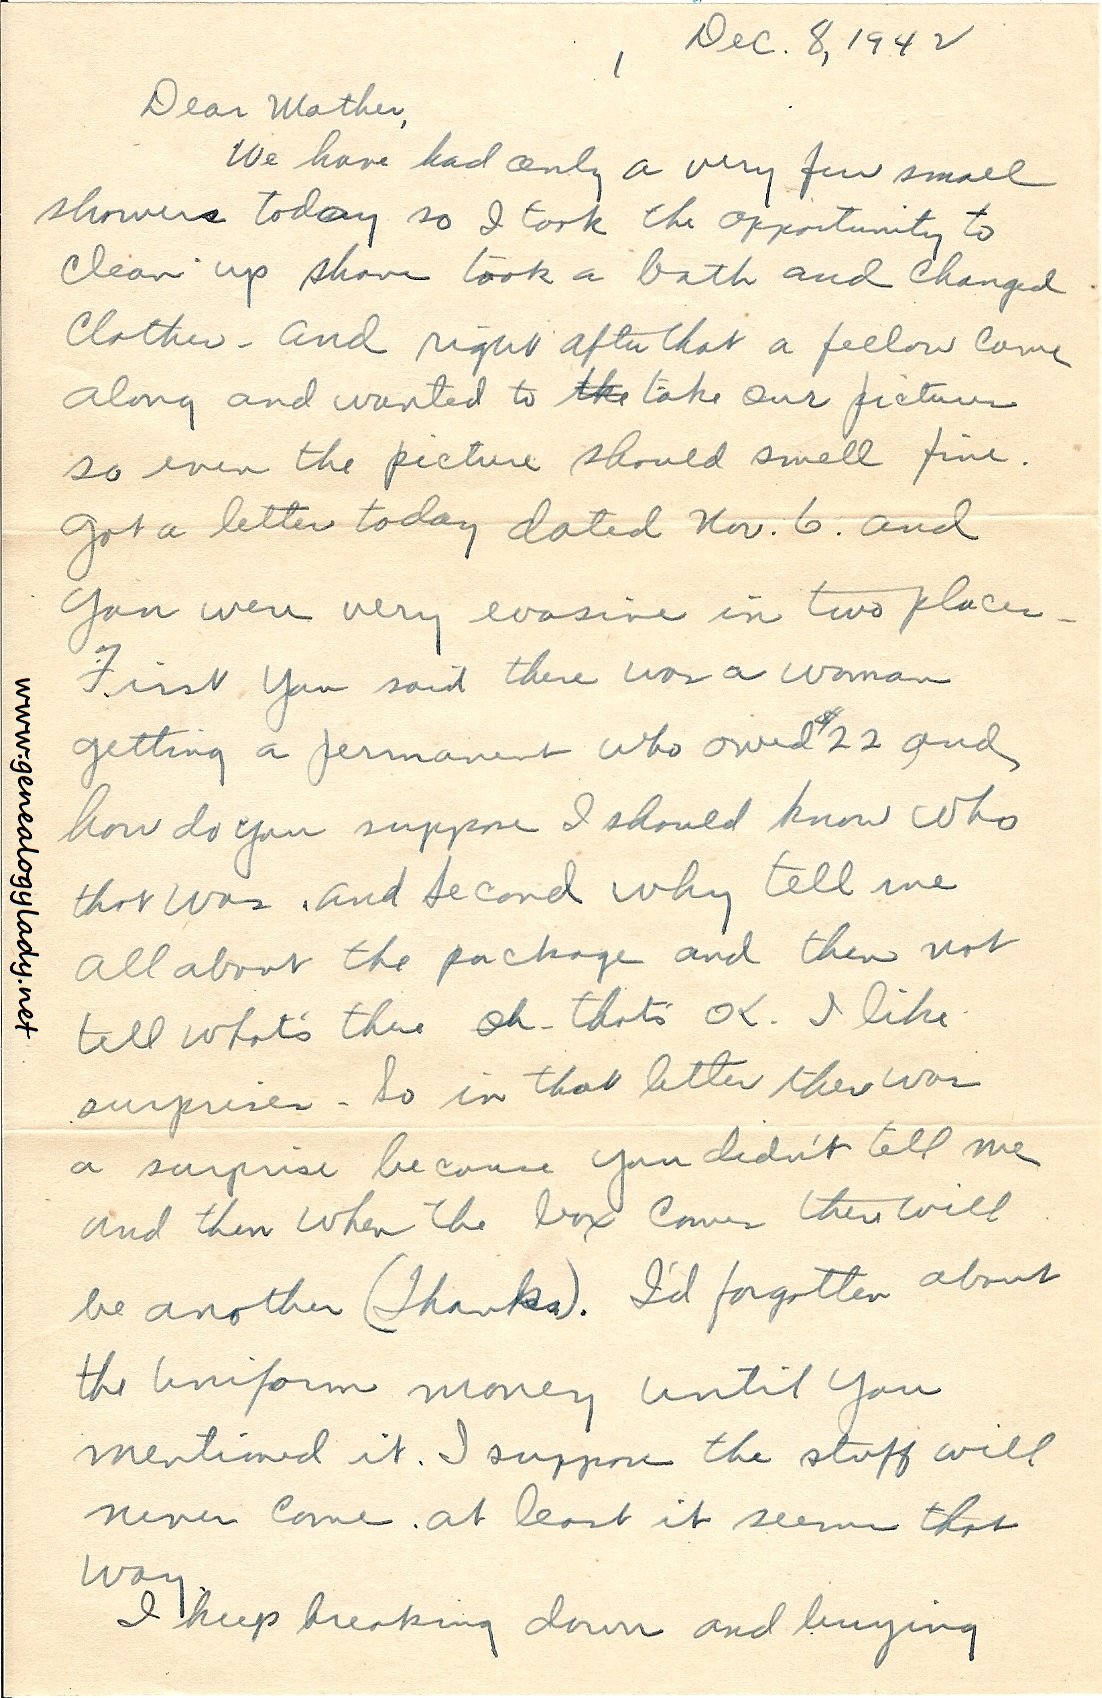 Dec. 8, 1942
Dear Mother,
We have had only a very few small
showers today so I took the opportunity to
clean up shave took a bath and changed
clothes - and right after that a fellow came
along and wanted to the take our picture
so even the picture should smell fine.
Got a letter today dated Nov. 6. and
you were very evasive in two places -
First you said there was a woman
getting a permanent who owed $22 and
how do you suppose I should know who
that was. and second why tell me
all about the package and then not
tell what's there oh - that's OK. I like
surprises - So in that letter there was
a surprise because you didn't tell me
and then when the box comes there will
be another (Thanks). I'd forgotten about
the uniform money until you
mentioned it. I suppose the stuff will
never come. at least it seems that
way.
I keep breaking down and buying
www.genealogylady.net